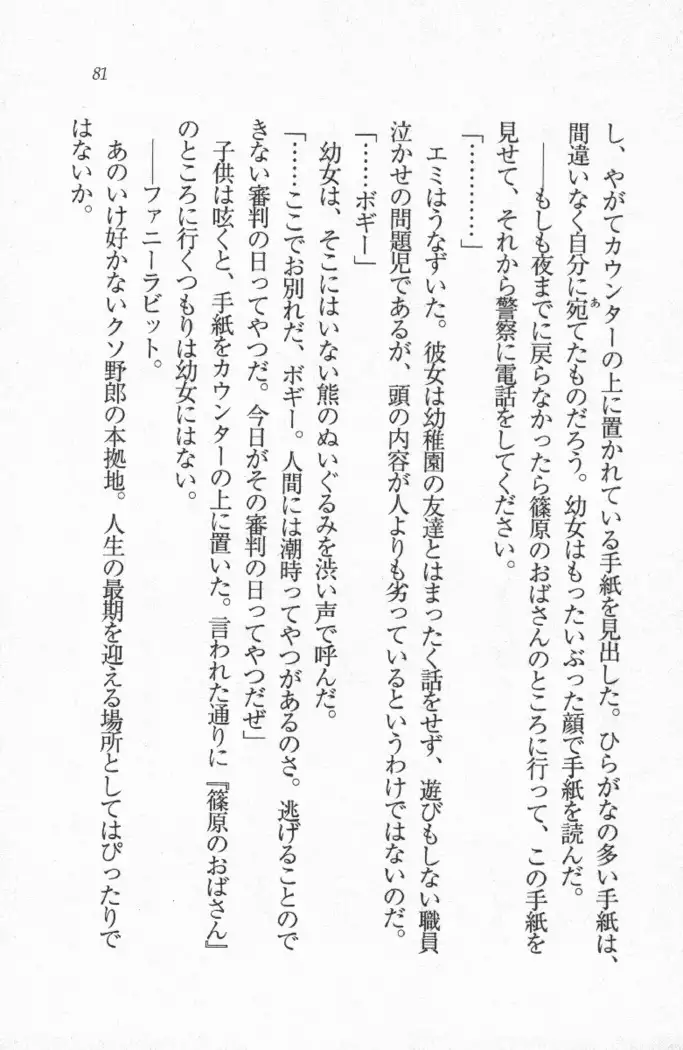 81
し、やがてカウンターの上に置かれている手紙を見出した。ひらがなの多い手紙は、
間違いなく自分に宛てたものだろう。幼女はもったいぶった顔で手紙を読んだ。
あ
――もしも夜までに戻らなかったら篠原のおばさんのところに行って、この手紙を
見せて、それから警察に電話をしてください。
「…………」
エミはうなずいた。彼女は幼稚園の友達とはまったく話をせず、遊びもしない職員
泣かせの問題児であるが、頭の内容が人よりも劣っているというわけではないのだ。
「……ボギー」
幼女は、そこにはいない熊のぬいぐるみを渋い声で呼んだ。
「……ここでお別れだ、ボギー。人間には潮時ってやつがあるのさ。逃げることので
きない審判の日ってやつだ。今日がその審判の日ってやつだぜ」
子供は呟くと、手紙をカウンターの上に置いた。言われた通りに『篠原のおばさん』
のところに行くつもりは幼女にはない。
――ファニーラビット。
あのいけ好かないクソ野郎の本拠地。人生の最期を迎える場所としてはぴったりで
はないか。